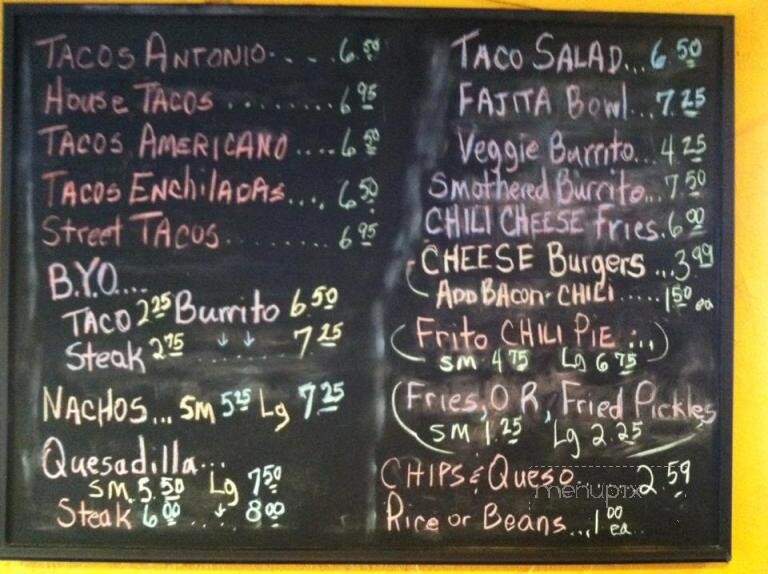 TACOS ANTONIO.... 6.50
House TACOS ........ 6 95
TACOS AMERICANO .... 6 50
TACOS ENchiLADAS.... 6 50
Street TACOS........ 6 95
B.Y.O....
TACO 2 25 Burrito 6.50
Steak 2 75 .. ↓ ↓ .. 7 25
NACHOS... SM 5 25 Lg 7 25
Quesadilla...
SM 5.50 Lg 7 50
Steak 6 00 .. ↓ .. 8 00
TACO SALAD... 6 50
FAJITA Bowl... 7 25
Veggie Burrito... 4 25
Smothered Burrito... 7 50
CHILI CHEESE Fries. 6 00
CHEESE Burgers ... 3 99
ADD BACON - CHILI ..... 1 50 ea
Frito CHILI PIE ...
SM 4 75 Lg 6 75
Fries, OR, Fried Pickles
SM 1.25 Lg 2.25
CHIPS & Queso.... 2.59
menupix
Rice or Beans... 1 00 ea